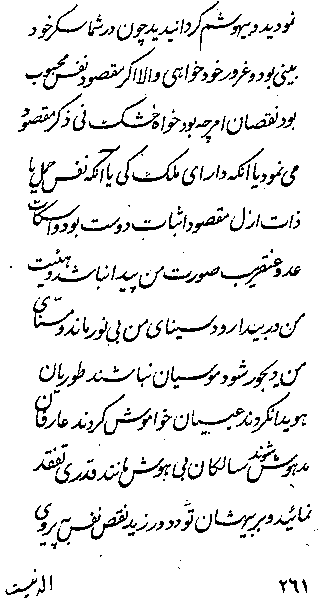 نمودید و بیهوشم کردانیدید چون در شما سکر خود
بینی بود و غرور خود خواهی والا اکر مقصود نفس محبوب
بود نقصان امر چه بود خواه خشک نی ذکر مقصود
می نمود یا آنکه دارای ملک کی یا آنکه نفس جمل یا
ذات ازل مقصود اثبات دوست بود و اسکات
عدو عنقریب صورت من پیدا نباشد و هیئت
من در بیدا رود سینای من بی نور ماند و سنای
من دیجور شود موسیان نباشند طوریان
هویدا نکردند عیسیان خواموش کردند عارفان
مدهوش شوند سالکان بی هوش مانند قدری تفقد
نمائید و بر بهیشان تو دد ورزید نقص نفس پیروی
۲۶۱
الدنیست